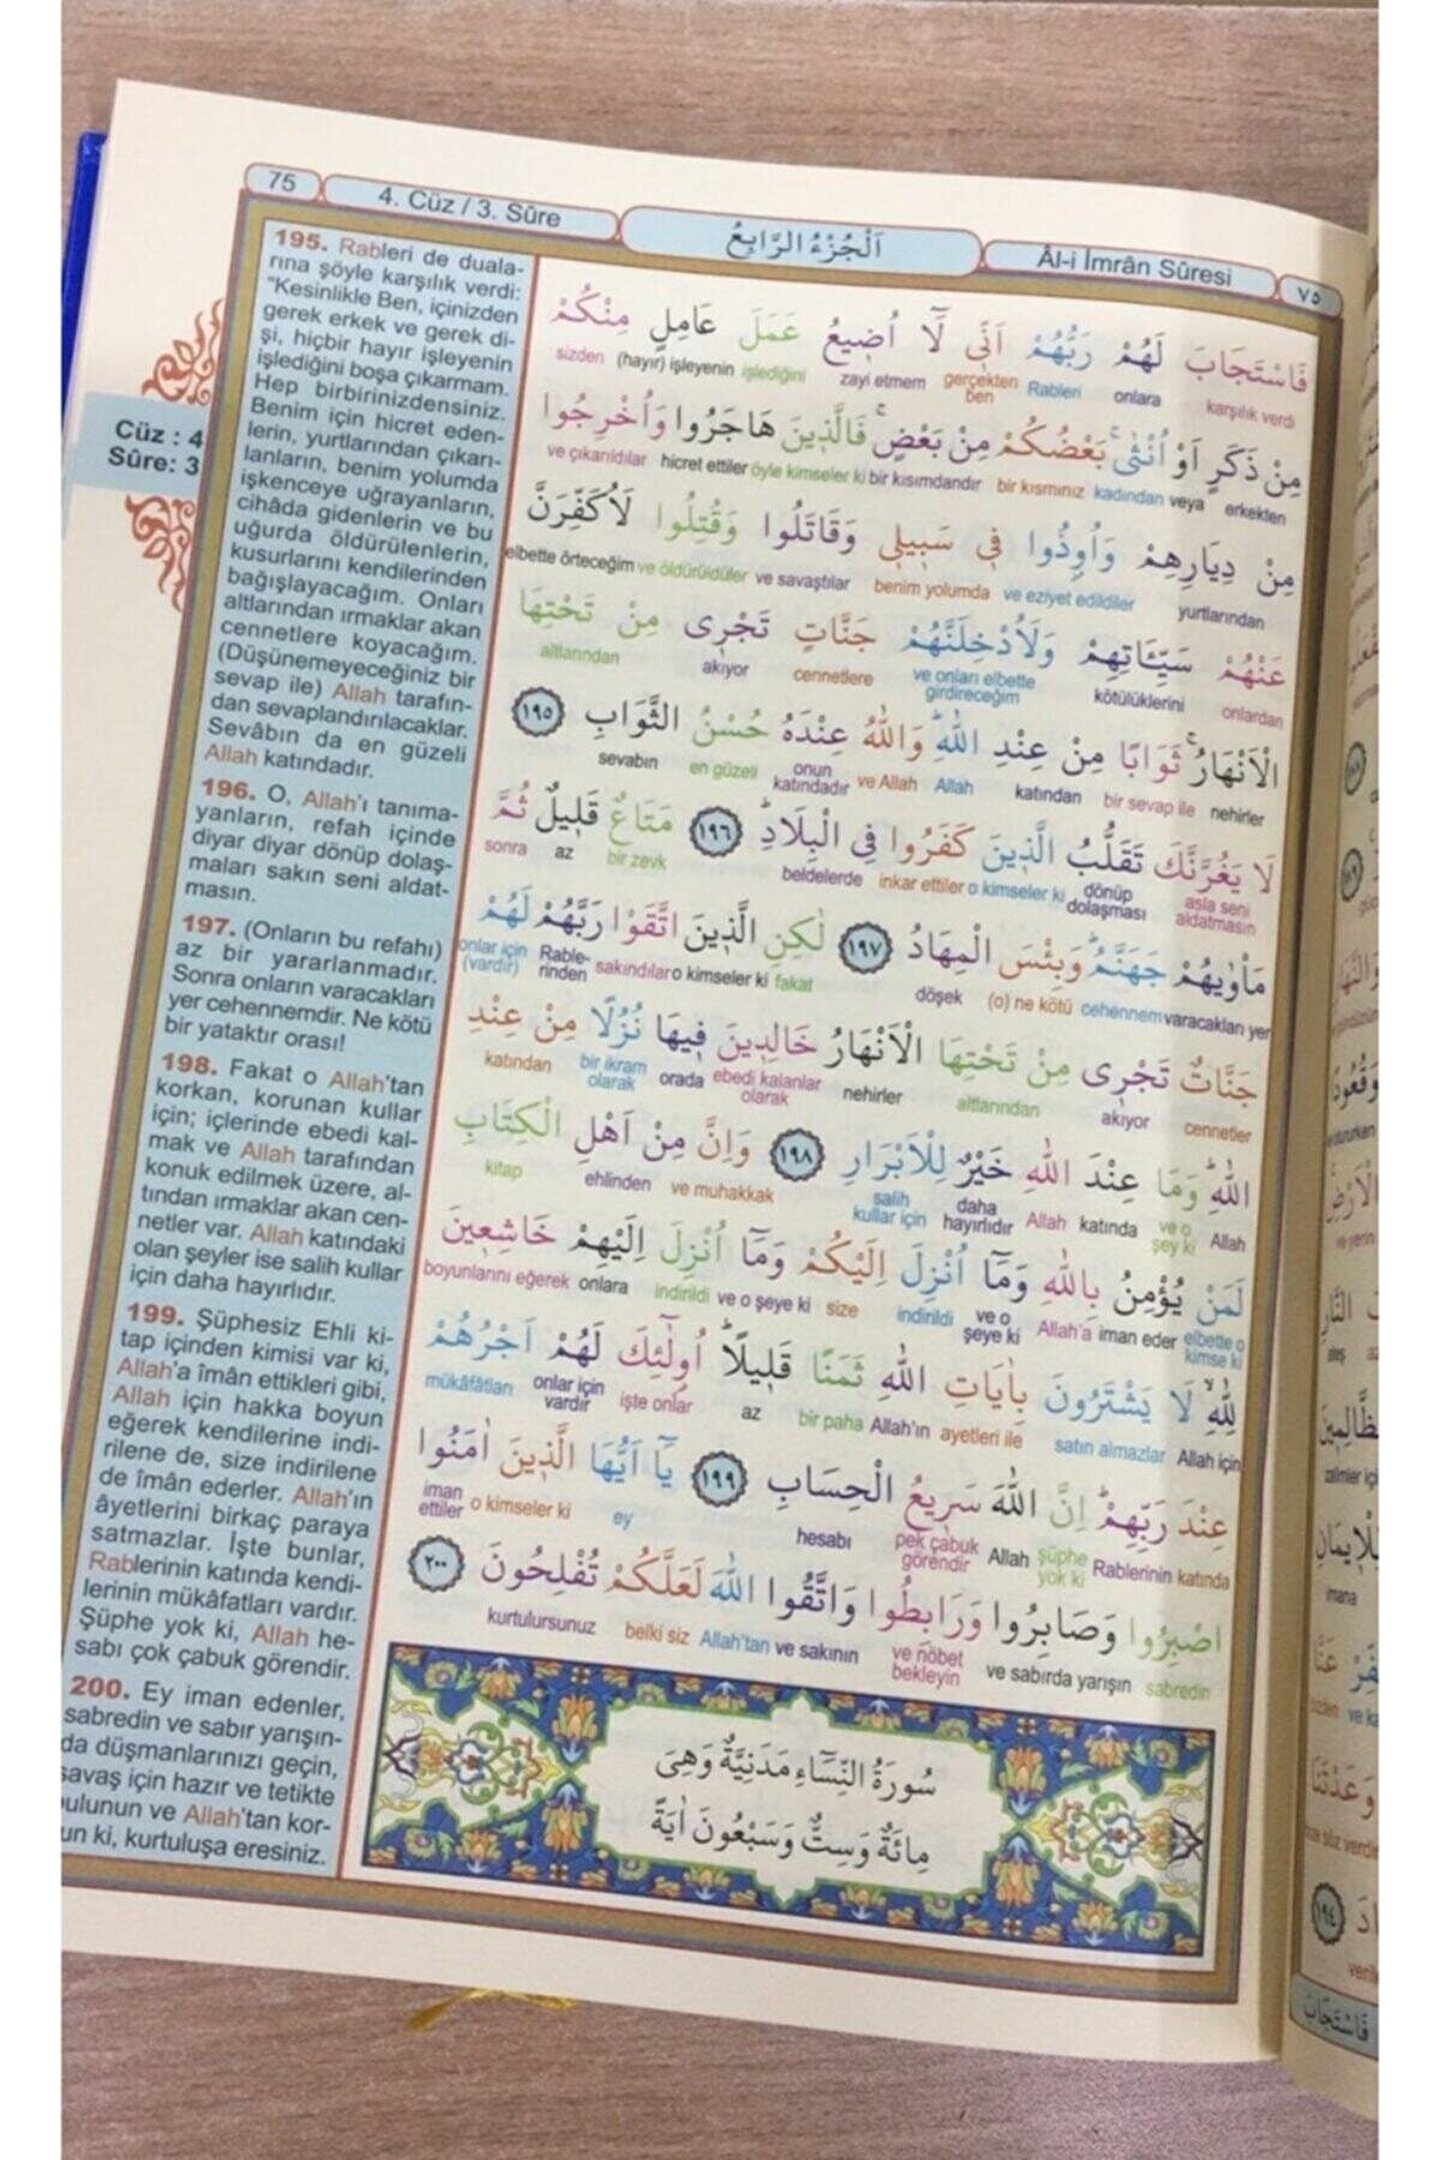 75
4. Cüz / 3. Sûre
اَلْجُزْءُ الرَّابِعُ
Âl-i İmrân Sûresi
٧٥
Cüz : 4
Sûre: 3
195. Rableri de duala-
rına şöyle karşılık verdi:
"Kesinlikle Ben, içinizden
gerek erkek ve gerek di-
şi, hiçbir hayır işleyenin
işlediğini boşa çıkarmam.
Hep birbirinizdensiniz.
Benim için hicret eden-
lerin, yurtlarından çıkarı-
lanların, benim yolumda
işkenceye uğrayanların,
cihâda gidenlerin ve bu
uğurda öldürülenlerin,
kusurlarını kendilerinden
bağışlayacağım. Onları
altlarından ırmaklar akan
cennetlere koyacağım.
(Düşünemeyeceğiniz bir
sevap ile) Allah tarafın-
dan sevaplandırılacaklar.
Sevâbın da en güzeli
Allah katındadır.
196. O, Allah'ı tanıma-
yanların, refah içinde
diyar diyar dönüp dolaş-
maları sakın seni aldat-
masın.
197. (Onların bu refahı)
az bir yararlanmadır.
Sonra onların varacakları
yer cehennemdir. Ne kötü
bir yataktır orası!
198. Fakat o Allah'tan
korkan, korunan kullar
için; içlerinde ebedi kal-
mak ve Allah tarafından
konuk edilmek üzere, al-
tından ırmaklar akan cen-
netler var. Allah katındaki
olan şeyler ise salih kullar
için daha hayırlıdır.
199. Şüphesiz Ehli ki-
tap içinden kimisi var ki,
Allah'a îmân ettikleri gibi,
Allah için hakka boyun
eğerek kendilerine indi-
rilene de, size indirilene
de îmân ederler. Allah'ın
âyetlerini birkaç paraya
satmazlar. İşte bunlar,
Rablerinin katında kendi-
lerinin mükâfatları vardır.
Şüphe yok ki, Allah he-
sabı çok çabuk görendir.
200. Ey iman edenler,
sabredin ve sabır yarışın-
da düşmanlarınızı geçin,
savaş için hazır ve tetikte
bulunun ve Allah'tan kor-
un ki, kurtuluşa eresiniz.
فَاسْتَجَابَ لَهُمْ رَبُّهُمْ اَنّ۪ي لَٓا اُض۪يعُ عَمَلَ عَامِلٍ مِنْكُمْ
sizden (hayır) işleyenin işlediğini zayi etmem gerçekten ben Rableri onlara karşılık verdi
مِنْ ذَكَرٍ اَوْ اُنْثٰىۚ بَعْضُكُمْ مِنْ بَعْضٍۚ فَالَّذ۪ينَ هَاجَرُوا وَاُخْرِجُوا
ve çıkarıldılar hicret ettiler öyle kimseler ki bir kısımdandır bir kısmınız kadından veya erkekten
مِنْ دِيَارِهِمْ وَاُو۫ذُوا ف۪ي سَب۪يل۪ي وَقَاتَلُوا وَقُتِلُوا لَاُكَفِّرَنَّ
elbette örteceğim ve öldürüldüler ve savaştılar benim yolumda ve eziyet edildiler yurtlarından
عَنْهُمْ سَيِّـَٔاتِهِمْ وَلَاُدْخِلَنَّهُمْ جَنَّاتٍ تَجْر۪ي مِنْ تَحْتِهَا
altlarından akıyor cennetlere ve onları elbette girdireceğim kötülüklerini onlardan
الْاَنْهَارُۚ ثَوَابًا مِنْ عِنْدِ اللّٰهِۜ وَاللّٰهُ عِنْدَهُ حُسْنُ الثَّوَابِ ١٩٥
sevabın en güzeli onun katındadır ve Allah Allah katından bir sevap ile nehirler
لَا يَغُرَّنَّكَ تَقَلُّبُ الَّذ۪ينَ كَفَرُوا فِي الْبِلَادِۜ ١٩٦ مَتَاعٌ قَل۪يلٌ ثُمَّ
sonra az bir zevk beldelerde inkar ettiler o kimseler ki dönüp dolaşması asla seni aldatmasın
مَأْوٰيهُمْ جَهَنَّمُۜ وَبِئْسَ الْمِهَادُ ١٩٧ لٰكِنِ الَّذ۪ينَ اتَّقَوْا رَبَّهُمْ لَهُمْ
onlar için (vardır) Rable- rinden sakındılar o kimseler ki fakat döşek (o) ne kötü cehennem varacakları yer
جَنَّاتٌ تَجْر۪ي مِنْ تَحْتِهَا الْاَنْهَارُ خَالِد۪ينَ ف۪يهَا نُزُلًا مِنْ عِنْدِ
katından bir ikram olarak orada ebedi kalanlar olarak nehirler altlarından akıyor cennetler
اللّٰهِۜ وَمَا عِنْدَ اللّٰهِ خَيْرٌ لِلْاَبْرَارِ ١٩٨ وَاِنَّ مِنْ اَهْلِ الْكِتَابِ
kitap ehlinden ve muhakkak salih kullar için daha hayırlıdır Allah katında ve o şey ki Allah
لَمَنْ يُؤْمِنُ بِاللّٰهِ وَمَٓا اُنْزِلَ اِلَيْكُمْ وَمَٓا اُنْزِلَ اِلَيْهِمْ خَاشِع۪ينَ
boyunlarını eğerek onlara indirildi ve o şeye ki size indirildi ve o şeye ki Allah'a iman eder elbette o kimse ki
لِلّٰهِۙ لَا يَشْتَرُونَ بِاٰيَاتِ اللّٰهِ ثَمَنًا قَل۪يلًاۜ اُو۬لٰٓئِكَ لَهُمْ اَجْرُهُمْ
mükâfâtları onlar için vardır işte onlar az bir paha Allah'ın ayetleri ile satın almazlar Allah için
عِنْدَ رَبِّهِمْۜ اِنَّ اللّٰهَ سَر۪يعُ الْحِسَابِ ١٩٩ يَٓا اَيُّهَا الَّذ۪ينَ اٰمَنُوا
iman ettiler o kimseler ki ey hesabı pek çabuk görendir Allah şüphe yok ki Rablerinin katında
اصْبِرُوا وَصَابِرُوا وَرَابِطُوا وَاتَّقُوا اللّٰهَ لَعَلَّكُمْ تُفْلِحُونَ ٢٠٠
kurtulursunuz belki siz Allah'tan ve sakının ve nöbet bekleyin ve sabırda yarışın sabredin
سُورَةُ النِّسَٓاءِ مَدَنِيَّةٌ وَهِيَ
مِائَةٌ وَسِتٌّ وَسَبْعُونَ اٰيَةً
١٩٤
فَاسْتَجَابَ